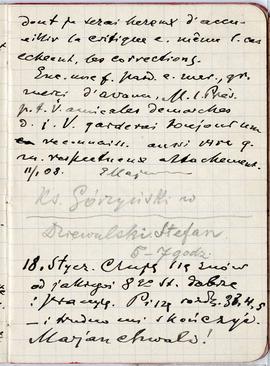 dont je serai heureux d'accu-
eillir la critique e. même l. cas
écheant, les corrections.
Enc. une f. pard. e. mer., gr.
merci d'avance, M. l. Prés.
p. t. V. amicales demarches
d. j. V. garderai toujours un
reconnaiss. aussi vive q.
m. respectueux attachement.
11/I 08.
Ks. Górzyński w
Drzewulski Stefan
5-7 godz.
18. Stycz. Czuję się znów
od jakiegoś 8ec dobrze
i pracuję. Piszę rozdz. 3, 4, 5
— i trudno mi skończyć.
Marjan chwalo!